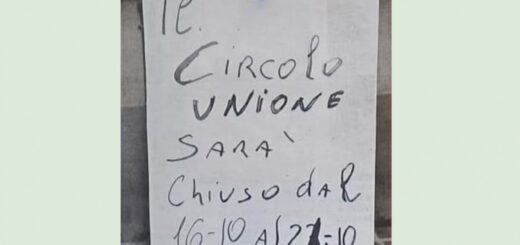 Il
CIRCOLO
UNIONE
SARÀ
Chiuso dal
16-10 Al 21-10